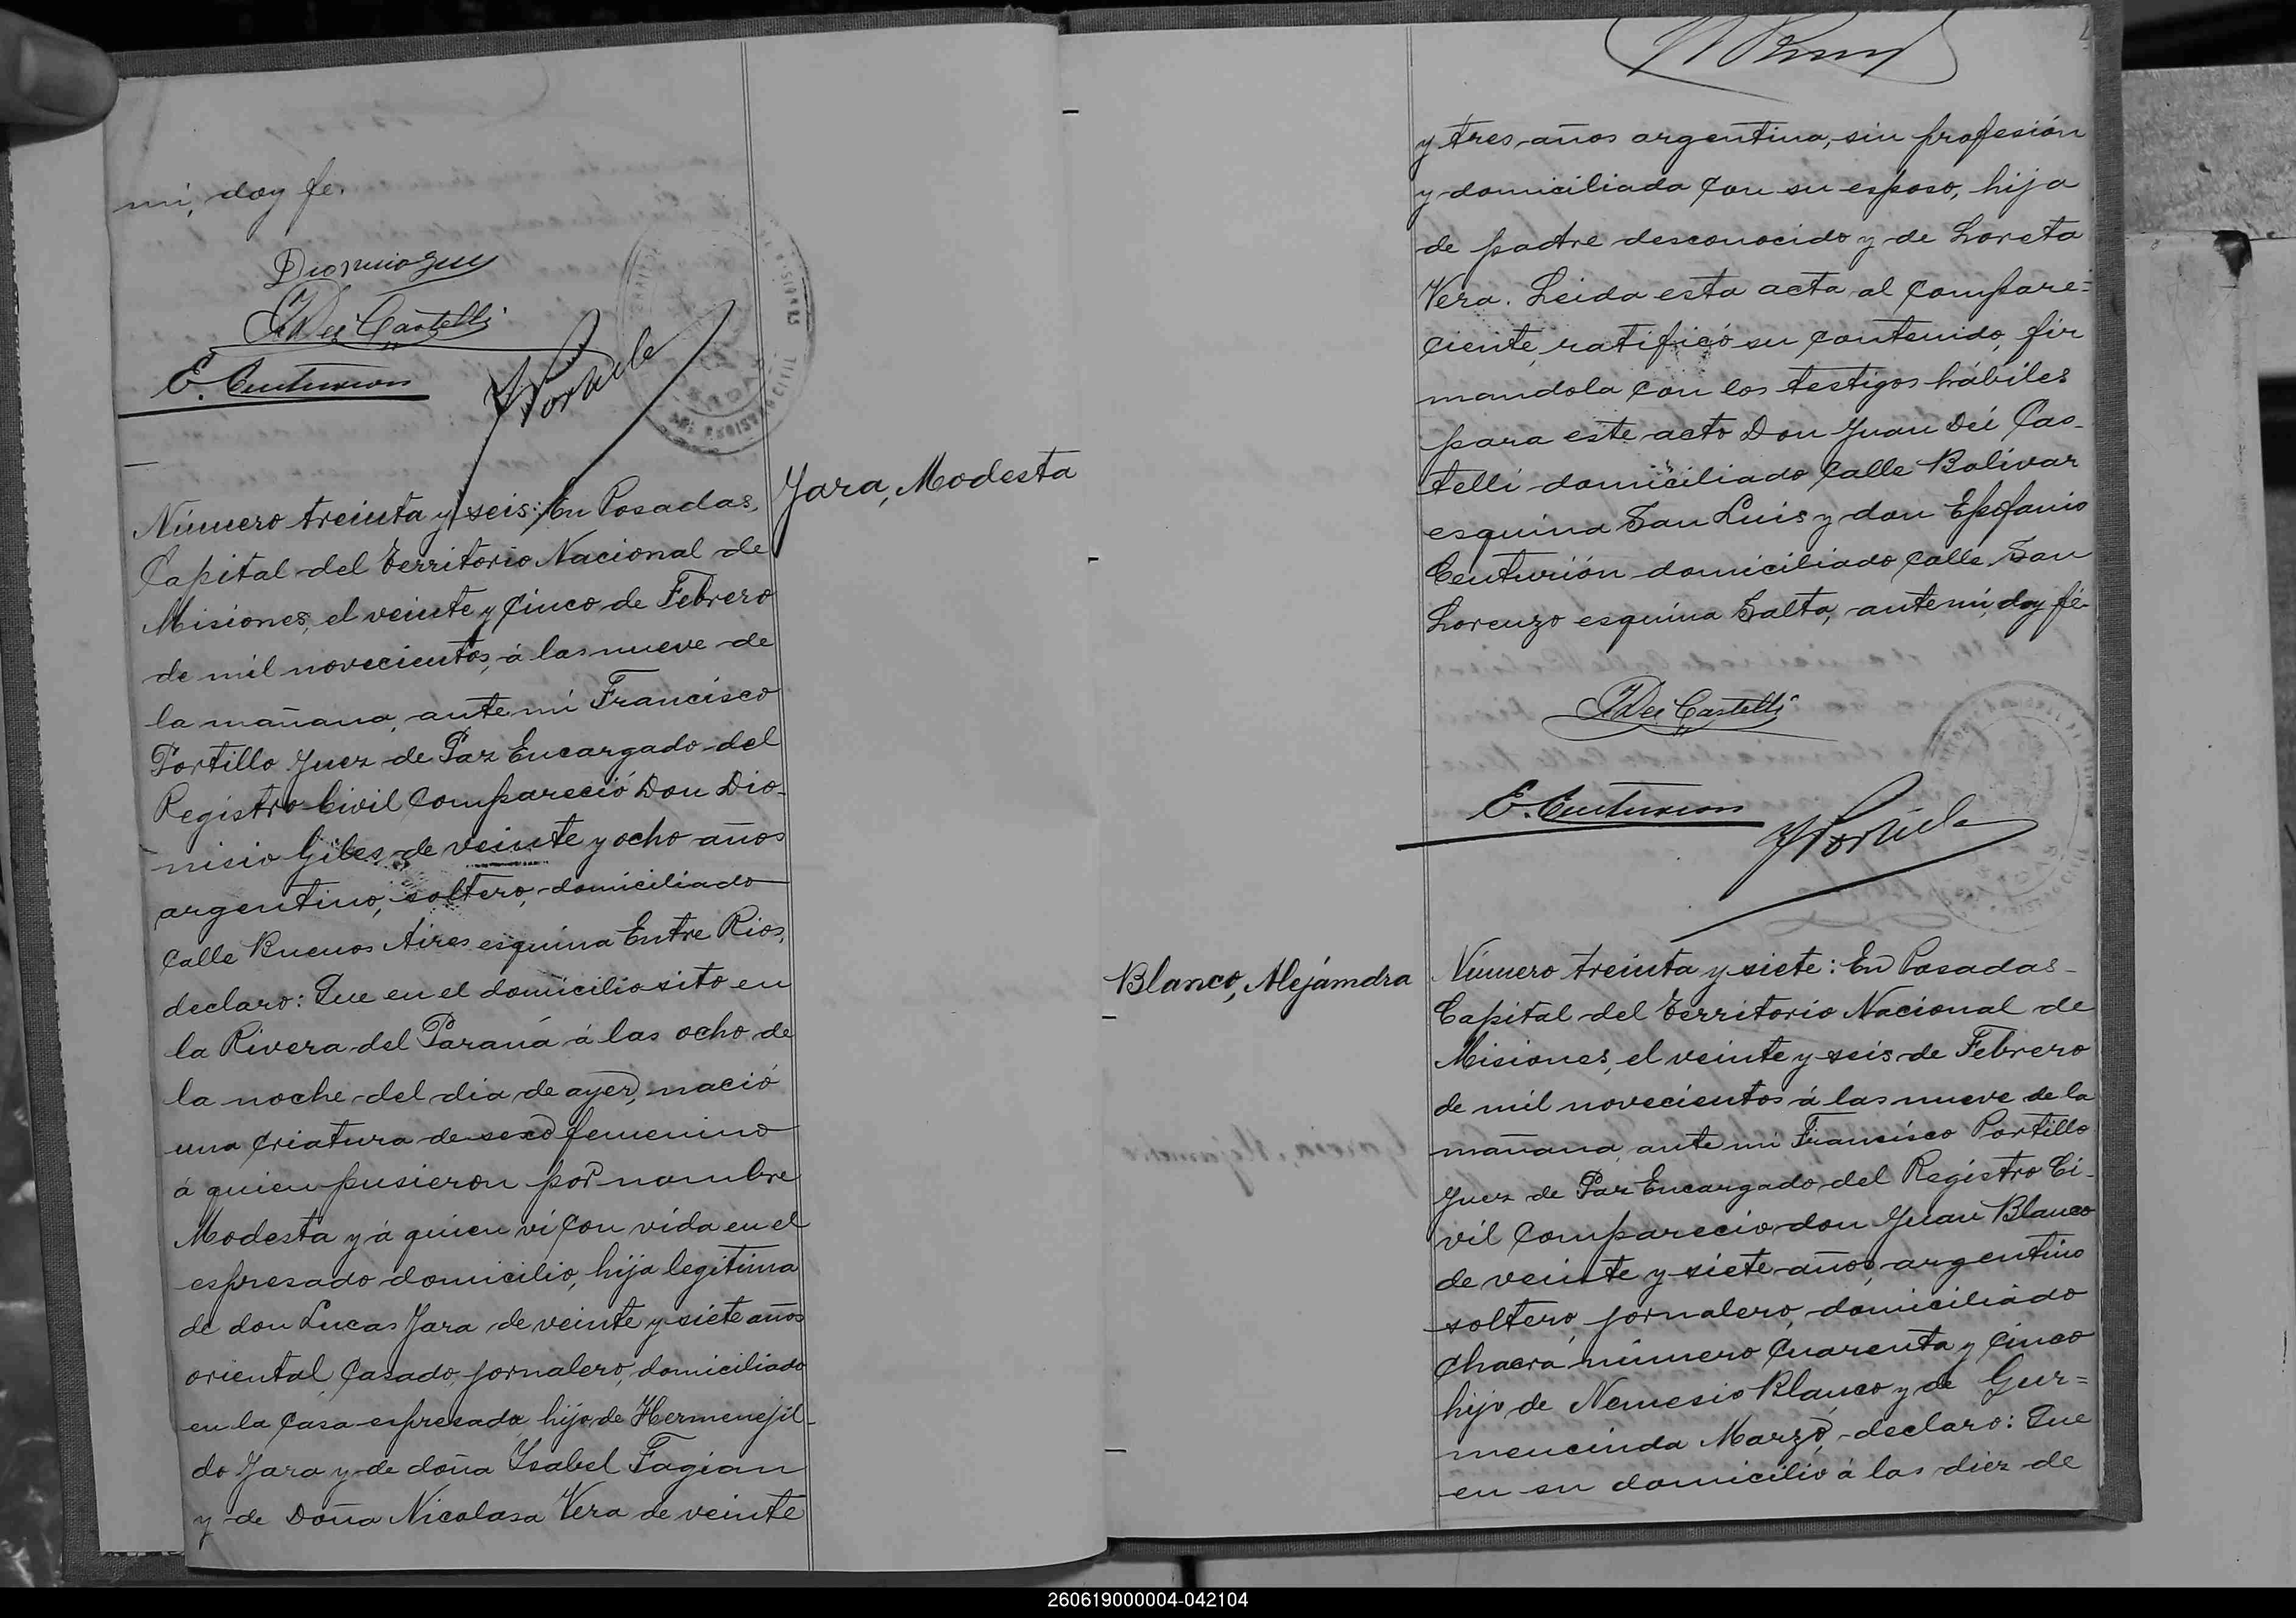 mi, doy fe.
J Dei Castelli
E. Centurion
F Portillo
Yara, Modesta
Número treinta y seis: En Posadas,
Capital del Territorio Nacional de
Misiones, el veinte y cinco de Febrero
de mil novecientos, á las nueve de
la mañana, ante mí Francisco
Portillo Juez de Paz Encargado del
Registro Civil Compareció Don Dio-
nisio Giles de veinte y ocho años
argentino, soltero, domiciliado
Calle Buenos Aires esquina Entre Rios,
declaro: Que en el domicilio sito en
la Rivera del Paraná á las ocho de
la noche del dia de ayer, nació
una criatura de sexo femenino
á quien pusieron por nombre
Modesta y á quien ví con vida en el
espresado domicilio, hija legitima
de don Lucas Yara de veinte y siete años
oriental, Casado, jornalero, domiciliado
en la Casa espresada, hijo de Hermenejil-
do Yara y de doña Ysabel Fagian
y de Doña Nicolasa Vera de veinte
y tres años argentina, sin profesión
y domiciliada con su esposo, hija
de padre desconocido y de Loreta
Vera. Leida esta acta al compare=
ciente, ratificó su contenido, fir
mandola con los testigos hábiles
para este acto Don Juan Dei Cas-
telli domiciliado Calle Bolivar
esquina San Luis y don Epofanio
Centurión domiciliado Calle San
Lorenzo esquina Salta, ante mí, doy fé-
J Dei Castelli
E. Centurion
F Portillo
Blanco, Alejándra
Número treinta y siete: En Posadas-
Capital del Territorio Nacional de
Misiones, el veinte y seis de Febrero
de mil novecientos á las nueve de la
mañana, ante mi Francisco Portillo
Juez de Paz Encargado del Registro Ci-
vil Comparecio don Juan Blanco
de veinte y siete años, argentino
soltero, jornalero, domiciliado
Chacra número Cuarenta y Cinco
hijo de Nemesio Blanco y de Gur=
mencinda Marzo, declaro: Que
en su domicilio á las diez de
260619000004-042104